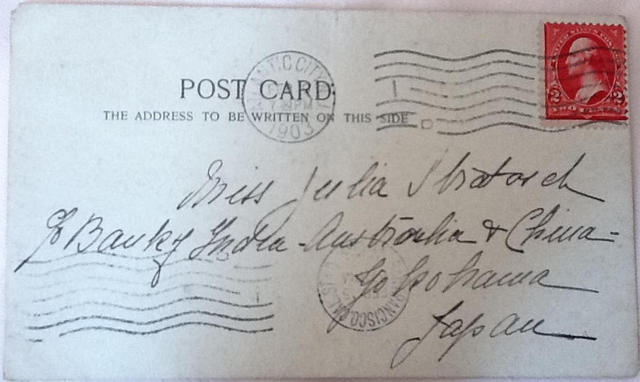 POST CARD.
THE ADDRESS TO BE WRITTEN ON THIS SIDE
ATLANTIC CITY
7-PM
1903
TWO CENTS
2 2
Miss Julia
c/o Bank of India - Australia & China -
Yokohama
Japan
FRANCISCO, CAL.